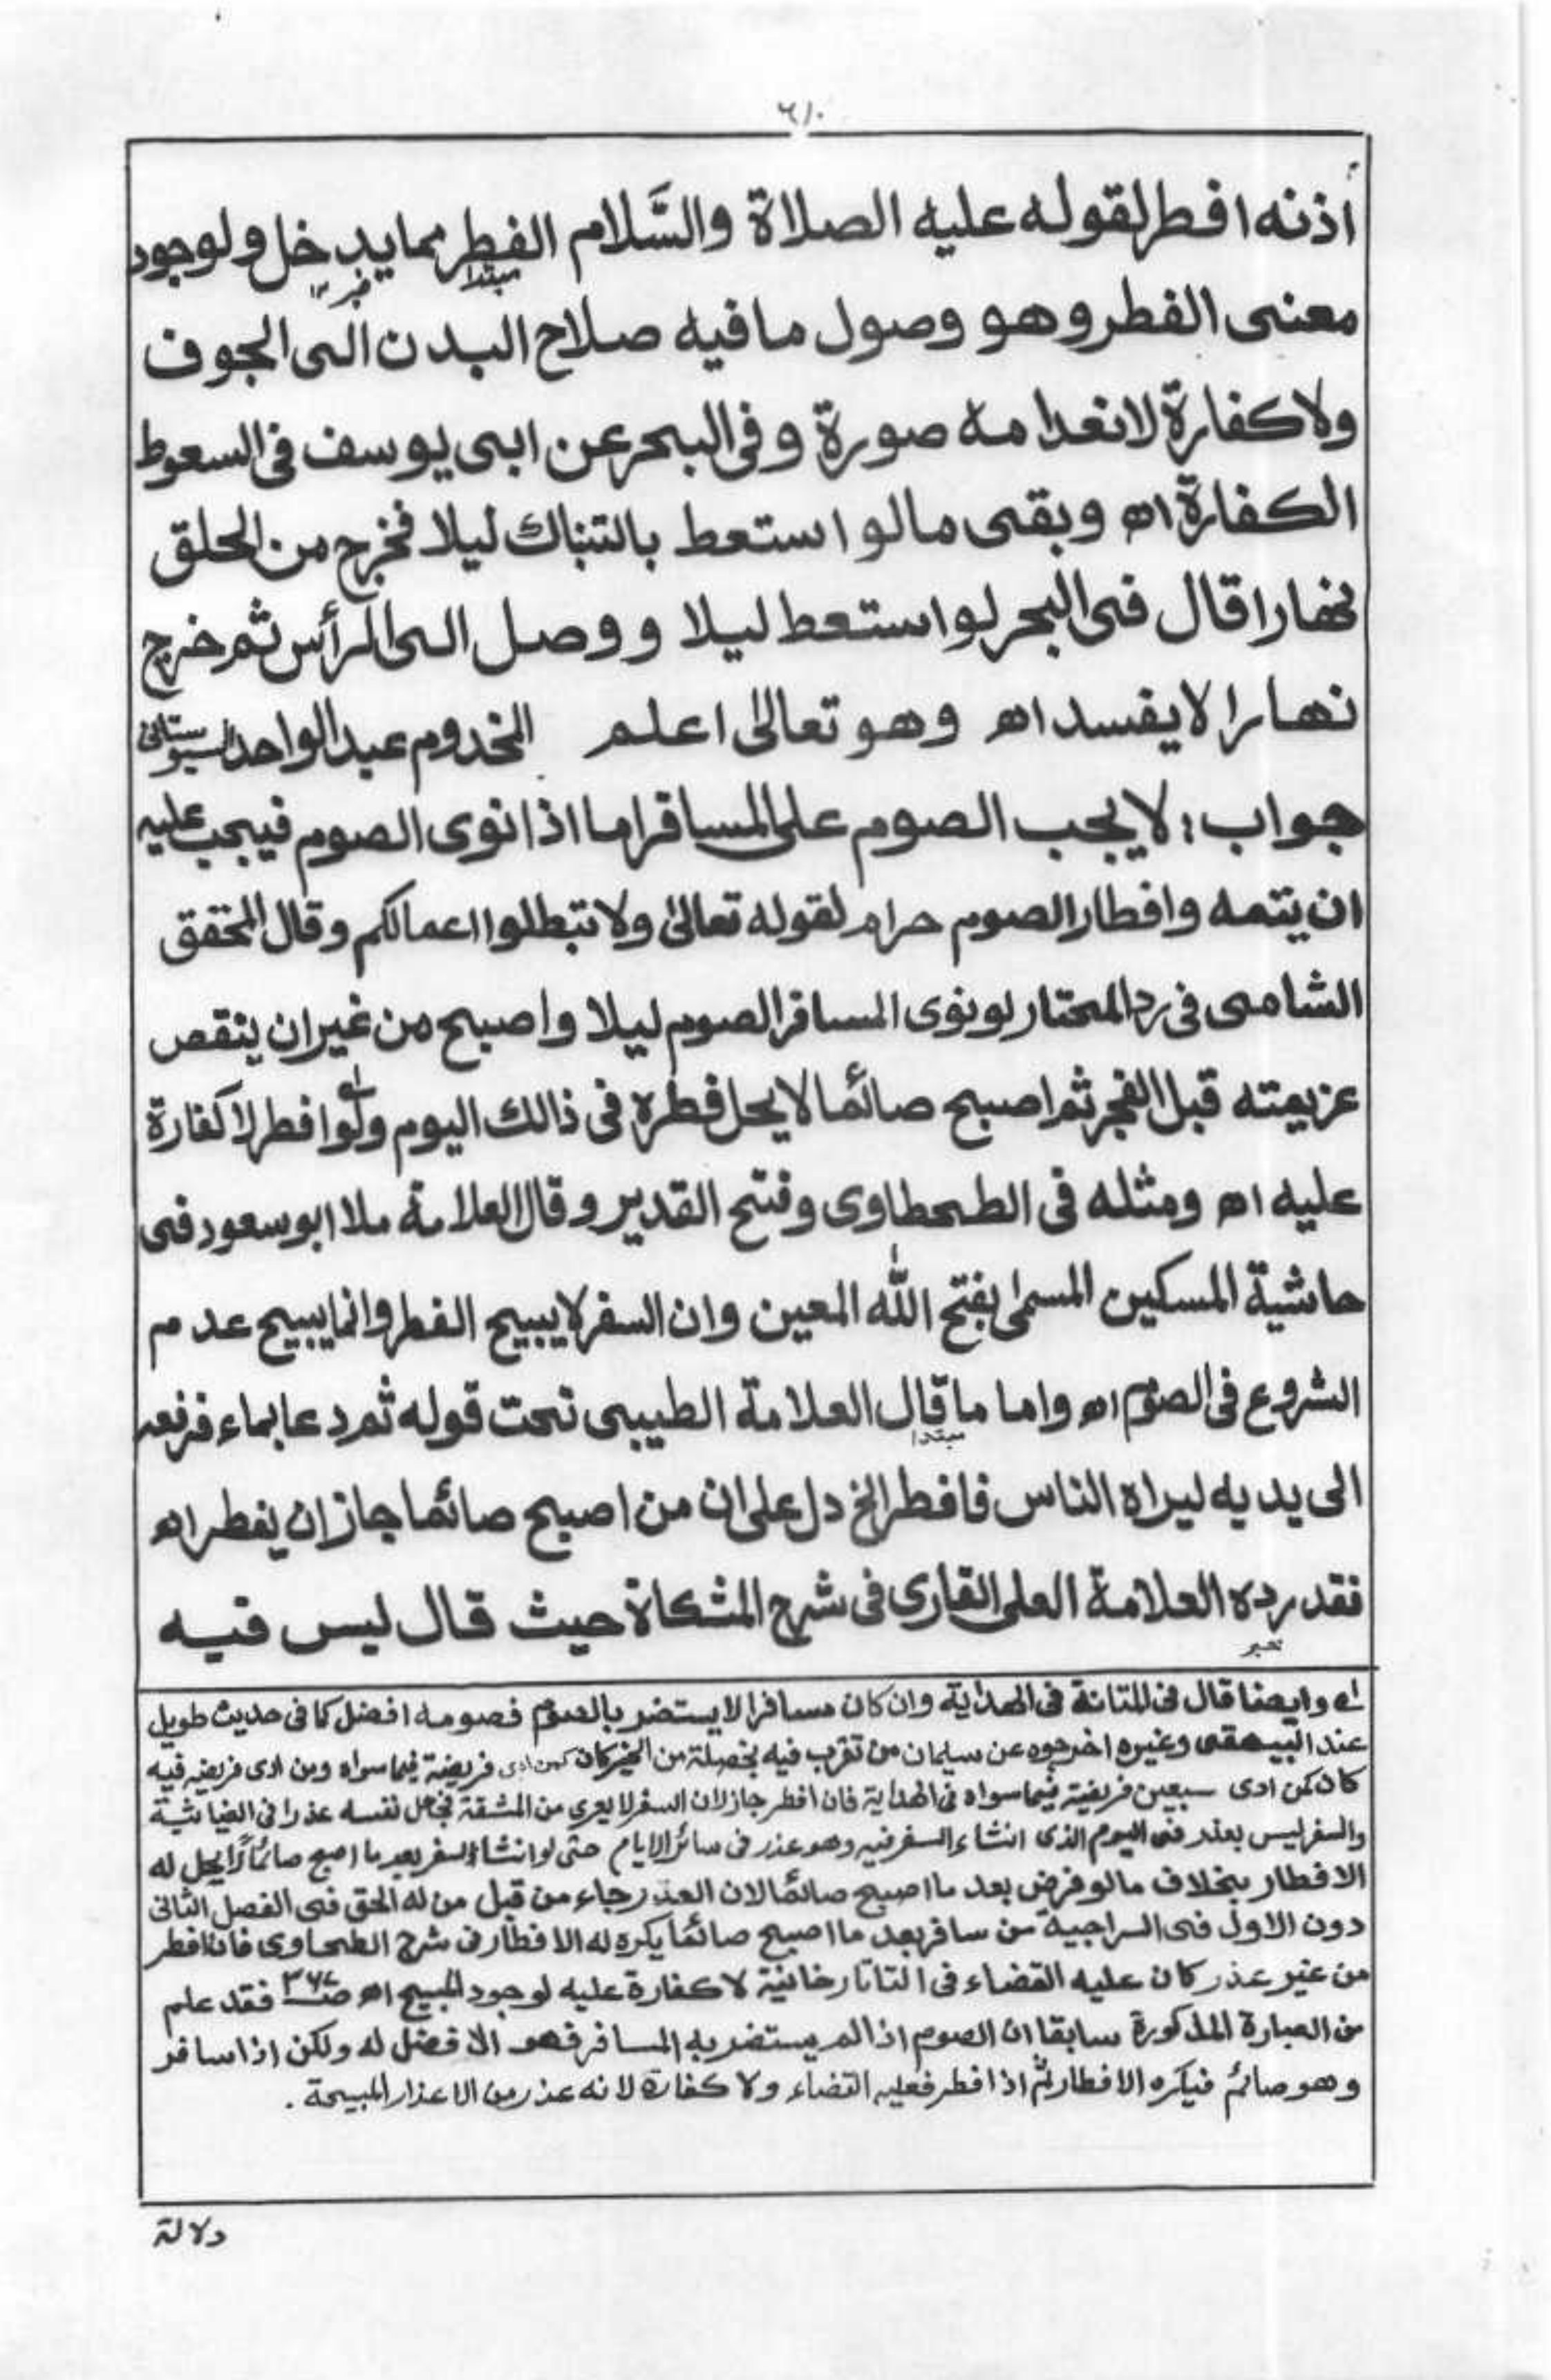 ٦١٠
أذنه افطر لقوله عليه الصلاة والسَّلام الفطر مما يدخل ولوجود
مبتدا خبر ١٢
معنى الفطر وهو وصول ما فيه صلاح البدن الى الجوف
ولا كفارة لانعدامه صورة وفى البحر عن ابى يوسف فى السعوط
الكفارة اه وبقى ما لو استعط بالتنباك ليلا فخرج من الحلق
نهارا قال فى البحر لو استعط ليلا ووصل الى الرأس ثم خرج
نهارا لا يفسد اه وهو تعالىٰ اعلم المخدوم عبد الواحد السيوستانى
جواب: لا يجب الصوم على المسافر اما اذا نوى الصوم فيجب عليه
ان يتمه وافطار الصوم حرام لقوله تعالىٰ ولا تبطلوا اعمالكم وقال المحقق
الشامى فى رد المحتار لو نوى المسافر الصوم ليلا واصبح من غير ان ينقص
عزيمته قبل الفجر ثم اصبح صائما لا يحل فطره فى ذالك اليوم ولو افطر لا كفارة
عليه اه ومثله فى الطحطاوى وفتح القدير وقال العلامة ملا ابو سعود فى
حاشية المسكين المسمىٰ بفتح اللّٰه المعين وان السفر لا يبيح الفطر وانما يبيح عدم
الشروع فى الصوم اه واما ما قال العلامة الطيبى تحت قوله ثم دعا بماء فرفعه
مبتدا
الى يديه ليراه الناس فافطر الخ دل على ان من اصبح صائما جاز ان يفطر اه
فقد رده العلامة العلى القارى فى شرح المشكاة حيث قال ليس فيه
خبر
لـه وايضا قال فى المتانة فى الهداية وان كان مسافرا لا يستضر بالصوم فصومه افضل كما فى حديث طويل
عند البيهقى وغيره اخرجوه عن سليمان من تقرب فيه بخصلة من الخير كان كمن ادى فريضة فيما سواه ومن ادى فريضة فيه
كان كمن ادى سبعين فريضة فيما سواه فى الهداية فان افطر جاز لان السفر لا يعرى عن المشقة فجعل نفسه عذرا فى الغياثية
والسفر ليس بعذر فى اليوم الذى انشاء السفر فيه وهو عذر فى سائر الايام حتى لو انشاء السفر بعد ما اصبح صائما لا يحل له
الافطار بخلاف ما لو فرض بعد ما اصبح صائما لان العذر جاء من قبل من له الحق فى الفصل الثانى
دون الاول فى السراجية من سافر بعد ما اصبح صائما يكره له الافطار فى شرح الطحاوى فان افطر
من غير عذر كان عليه القضاء فى التاتارخانية لا كفارة عليه لوجود المبيح اه صـ٣٦٢ فقد علم
من العبارة المذكورة سابقا ان الصوم اذا لم يستضر به المسافر فهو الافضل له ولكن اذا سافر
وهو صائم فيكره الافطار ثم اذا افطر فعليه القضاء ولا كفارة لانه عذر من الاعذار المبيحة .
دلالة